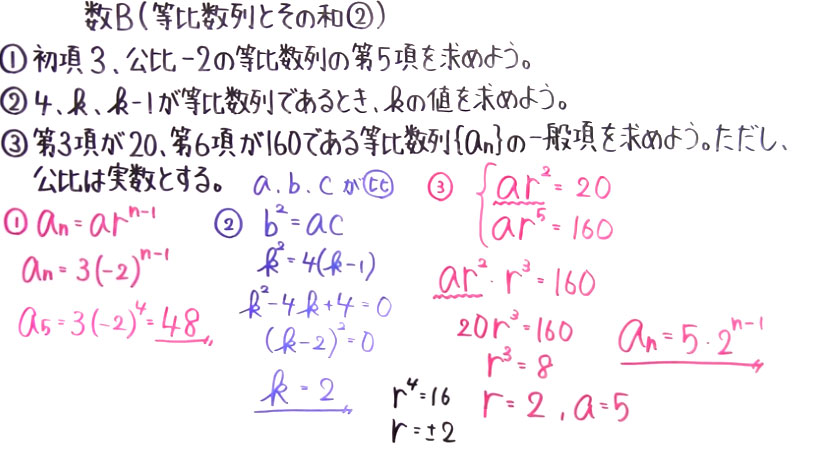 数B(等比数列とその和②)
① 初項3、公比-2の等比数列の第5項を求めよう。
② 4、k、k-1が等比数列であるとき、kの値を求めよう。
③ 第3項が20、第6項が160である等比数列{an}の一般項を求めよう。ただし、
公比は実数とする。
① an=ar^{n-1}
an=3(-2)^{n-1}
a5=3(-2)^4=48
a.b.cが比
② b^2=ac
k^2=4(k-1)
k^2-4k+4=0
(k-2)^2=0
k=2
③ { ar^2=20
ar^5=160
ar^2・r^3=160
20r^3=160
r^3=8
r=2,a=5
r^4=16
r=±2
an=5・2^{n-1}